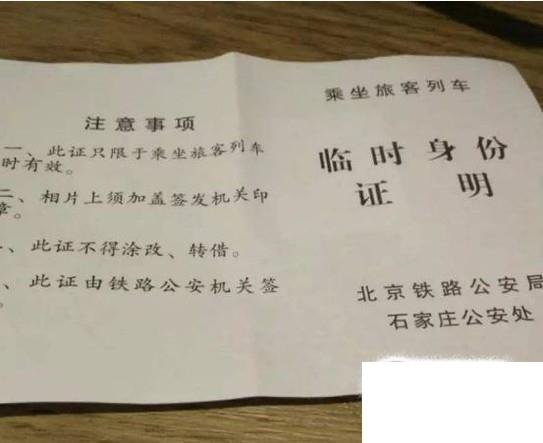 注意事项
一、此证只限于乘坐旅客列车
时有效。
二、相片上须加盖签发机关印
章。
、此证不得涂改、转借。
、此证由铁路公安机关签
。
乘坐旅客列车
临时身份
证明
北京铁路公安局
石家庄公安处